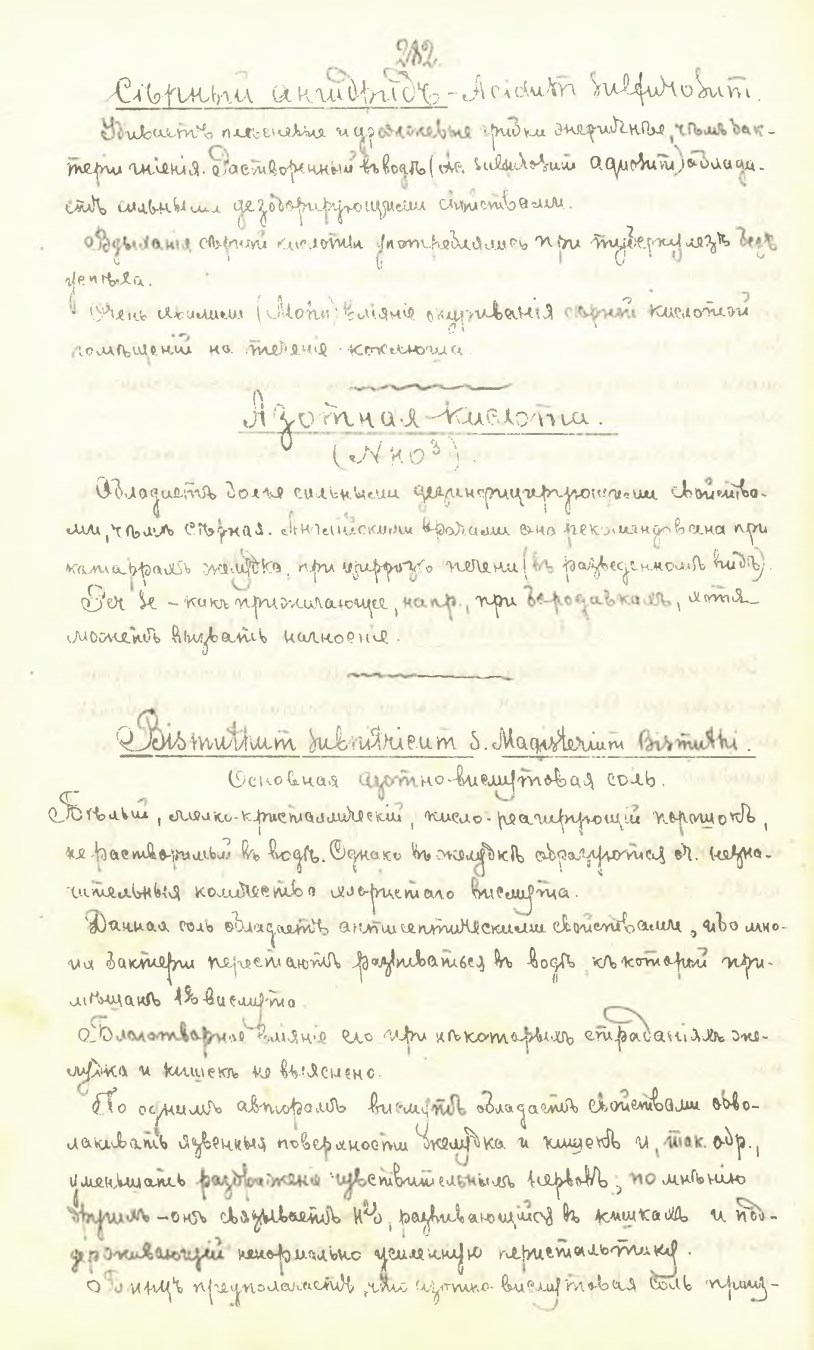 282
Сѣрный ангидридъ - Acidum sulfurosum.
Убиваетъ плѣсневые и дрожжевые грибки энергичнѣе, чѣмъ бак-
теріи гніенія. Растворенный въ водѣ (Ac. sulfurosum aquosum) облада-
етъ сильными дезодорирующими свойствами.
Вдыханія сѣрной кислоты употреблялись при туберкулезѣ безъ
успѣха.
Очень хвалили (Mohn) вліяніе окуриванія сѣрной кислотой
помѣщеній на теченіе коклюша
Азотная кислота.
(NHO³).
Обладаетъ болѣе сильными дезинфицирующими свойства-
ми, чѣмъ сѣрная. Англійскими врачами она рекомендована при
катаррахъ желудка, при циррозѣ печени (въ разведенномъ видѣ).
Per se - какъ прижигающее, напр., при бородавкахъ, хотя
можетъ вызвать нагноеніе.
Bismuthum subnitricum s. Magisterium Bismuthi.
Основная азотно-висмутовая соль.
Бѣлый, мелко-кристаллическій, кисло-реагирующій порошокъ,
не растворимый въ водѣ. Однако въ желудкѣ образуются оч. незна-
чительныя количества хлористаго висмута.
Данная соль обладаетъ антисептическими свойствами, ибо мно-
гія бактеріи перестаютъ развиваться въ водѣ, къ которой при-
мѣшанъ 1% висмута.
Благотворное вліяніе его при нѣкоторыхъ страданіяхъ же-
лудка и кишекъ не выяснено.
По однимъ авторамъ висмутъ обладаетъ свойствами обво-
лакивать язвенныя поверхности желудка и кишекъ и, так. обр.,
уменьшать раздраженіе чувствительныхъ нервовъ; по мнѣнію
другихъ - онъ связываетъ H²S, развивающійся въ кишкахъ и под-
держивающій ненормально усиленную перистальтику.
предполагаетъ, что азотно-висмутовая соль произ-